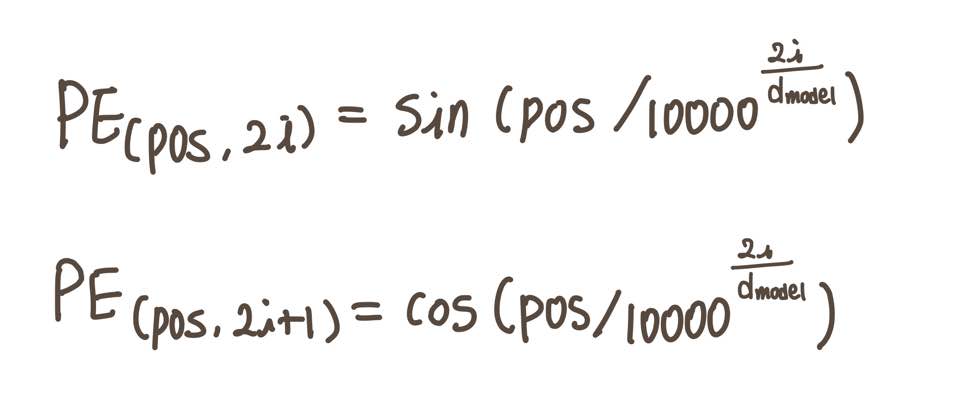 PE(pos, 2i) = sin (pos /10000^(2i/dmodel))
PE(pos, 2i+1) = cos (pos/10000^(2i/dmodel))